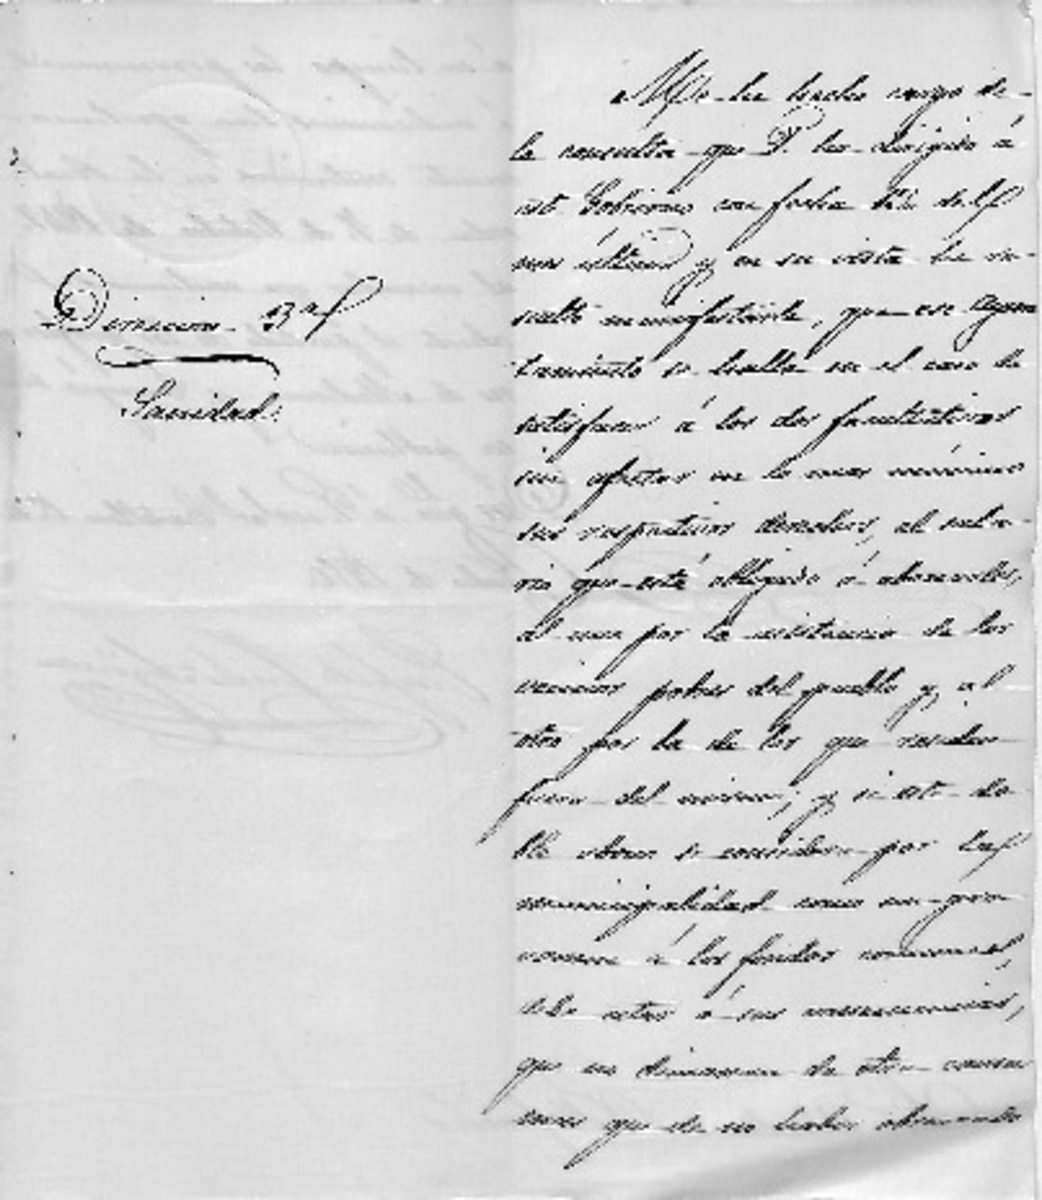 Direccion 3ª
Sanidad.
Me he hecho cargo de
la consulta que V. ha dirigido á
este Gobierno con fecha del
mes último y en su vista he re-
suelto manifestarle, que ese Ayun
tamiento se halla en el caso de
satisfacer á los dos facultativos
sin afectar en lo mas mínimo
sus respectivos derechos, el sala-
rio que está obligado á abonarles,
al uno por la asistencia de los
vecinos pobres del pueblo y al
otro por la de los que residen
fuera del mismo; y si este do
ble abono se considera por la
municipalidad como un gra
vamen á los fondos comunes,
debe estar á sus consecuencias,
que no dimanan de otra causa
mas que de no haber observado